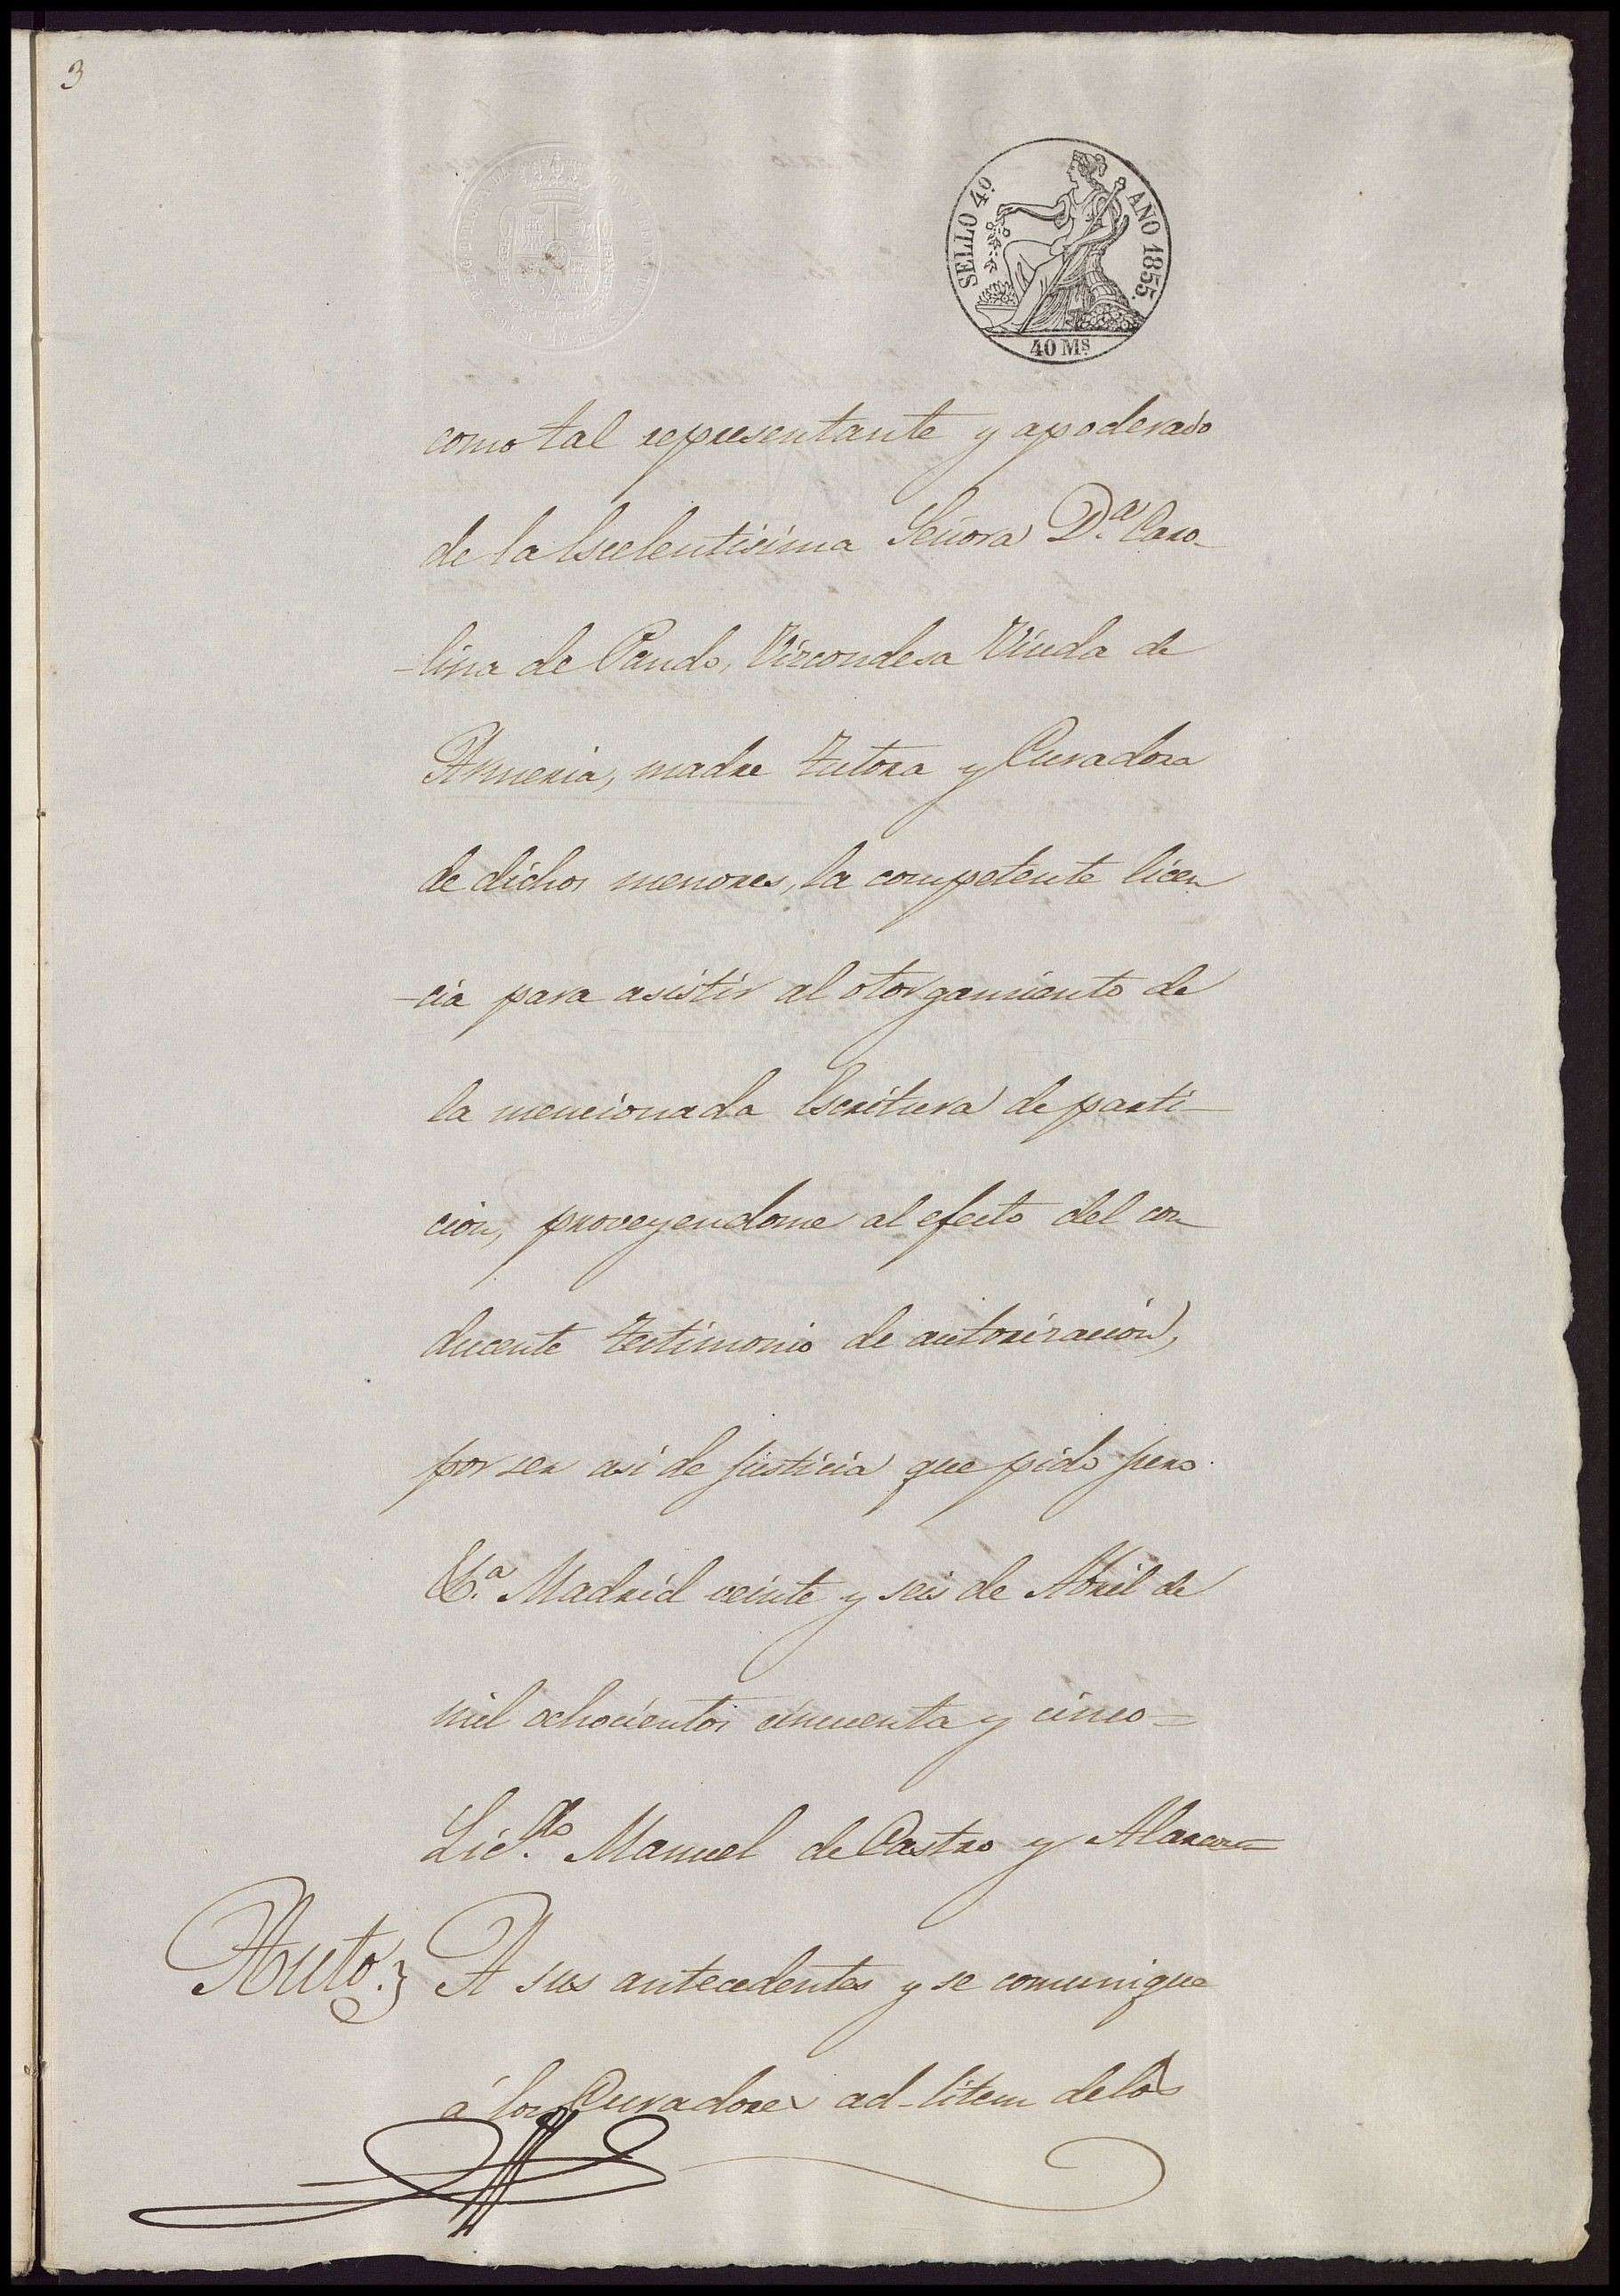 3
SELLO 4º AÑO 1855.
40 Ms
como tal representante y apoderado
de la Escelentisima Señora D.ª Caro-
-lina de Pando, Vizcondesa Viuda de
Armeria, madre tutora y Curadora
de dichos menores, la competente licen
-cia para asistir al otorgamiento de
la mencionada Escritura de parti-
cion, proveyendome al efecto del con
ducente testimonio de autorizacion,
por ser asi de justicia que pido juro
&.ª Madrid veinte y seis de Abril de
mil ochocientos cincuenta y cinco=
Lic.do Manuel de Castro y Alarcon=
Auto. A sus antecedentes y se comunique
á los Curadores ad-litem de los